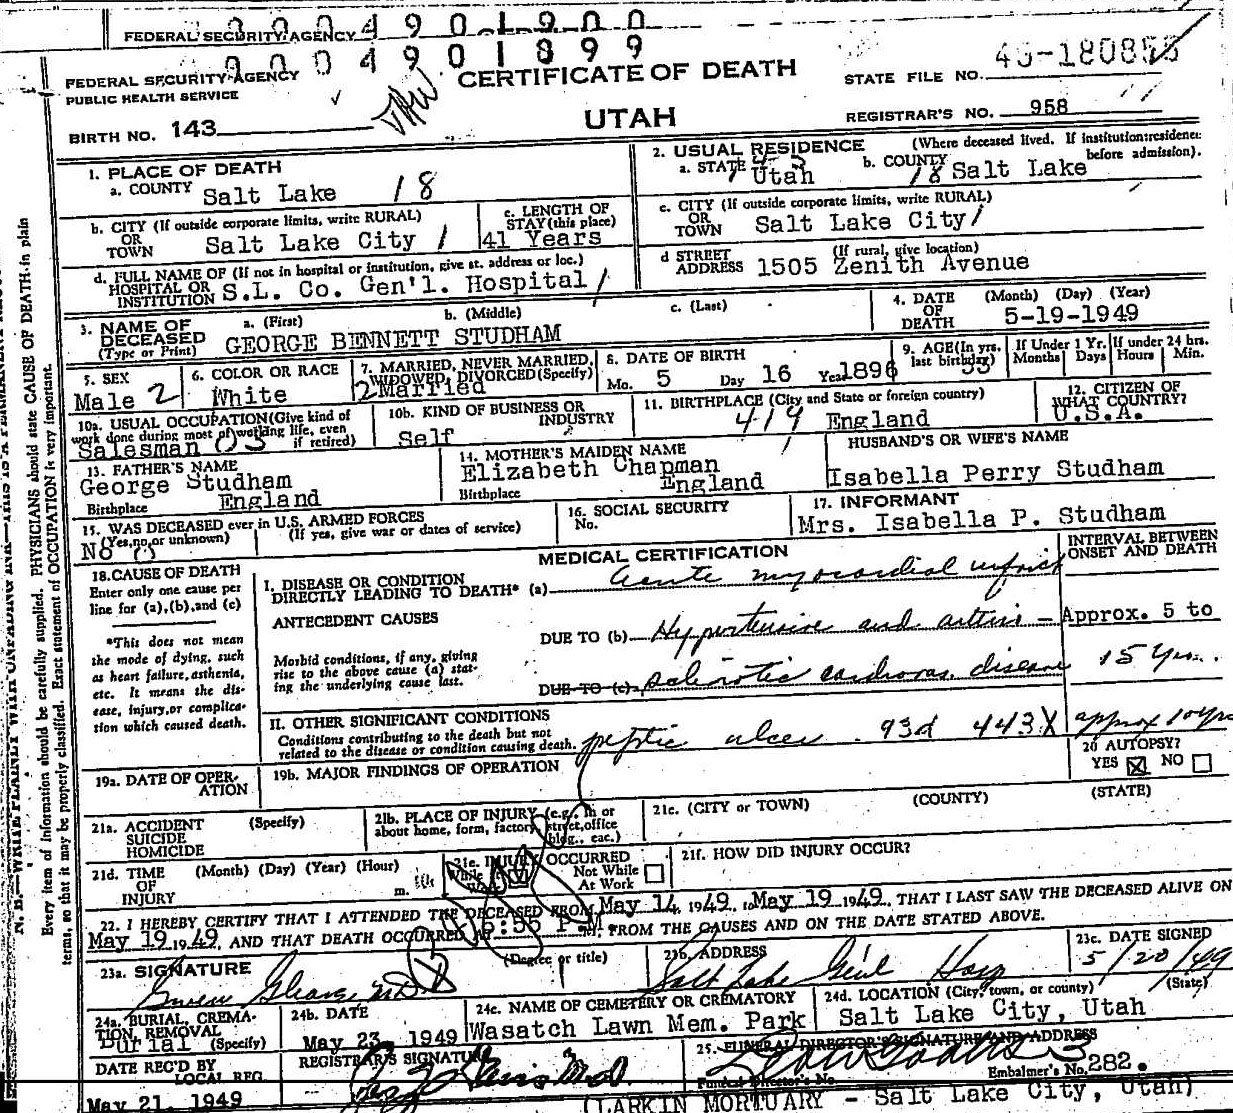 FEDERAL SECURITY AGENCY
0004901900
0004901899
FEDERAL SECURITY AGENCY
PUBLIC HEALTH SERVICE
BIRTH NO. 143
CERTIFICATE OF DEATH
UTAH
STATE FILE NO.
REGISTRAR'S NO. 958
1. PLACE OF DEATH
a. COUNTY Salt Lake 18
b. CITY (If outside corporate limits, write RURAL)
OR
TOWN Salt Lake City 1
c. LENGTH OF
STAY (this place)
41 Years
d. FULL NAME OF (If not in hospital or institution, give st. address or loc.)
HOSPITAL OR
INSTITUTION S.L. Co. Gen'l. Hospital
2. USUAL RESIDENCE (Where deceased lived. If institution:residence before admission).
a. STATE Utah
b. COUNTY 18 Salt Lake
c. CITY (If outside corporate limits, write RURAL)
OR
TOWN Salt Lake City
d STREET (If rural, give location)
ADDRESS 1505 Zenith Avenue
3. NAME OF DECEASED (Type or Print)
a. (First) b. (Middle) c. (Last)
GEORGE BENNETT STUDHAM
4. DATE OF DEATH (Month) (Day) (Year)
5-19-1949
5. SEX
Male 2
6. COLOR OR RACE
White
7. MARRIED, NEVER MARRIED, WIDOWED, DIVORCED (Specify)
2 Married
8. DATE OF BIRTH
Mo. 5 Day 16 Year 1896
9. AGE (In yrs. last birthday) 53
If Under 1 Yr. Months Days
If under 24 hrs. Hours Min.
10a. USUAL OCCUPATION (Give kind of work done during most of working life, even if retired)
Salesman
10b. KIND OF BUSINESS OR INDUSTRY
Self
11. BIRTHPLACE (City and State or foreign country)
419 England
12. CITIZEN OF WHAT COUNTRY?
U.S.A.
13. FATHER'S NAME
George Studham
Birthplace England
14. MOTHER'S MAIDEN NAME
Elizabeth Chapman
Birthplace England
HUSBAND'S OR WIFE'S NAME
Isabella Perry Studham
15. WAS DECEASED ever in U.S. ARMED FORCES
(Yes, no, or unknown) (If yes, give war or dates of service)
No 0
16. SOCIAL SECURITY
No.
17. INFORMANT
Mrs. Isabella P. Studham
MEDICAL CERTIFICATION
INTERVAL BETWEEN ONSET AND DEATH
18. CAUSE OF DEATH
Enter only one cause per
line for (a), (b), and (c)
*This does not mean
the mode of dying, such
as heart failure, asthenia,
etc. It means the dis-
ease, injury, or complica-
tion which caused death.
I. DISEASE OR CONDITION
DIRECTLY LEADING TO DEATH* (a) Acute myocardial infarct
ANTECEDENT CAUSES
DUE TO (b) Hypertensive and arterio- Approx. 5 to
Morbid conditions, if any, giving
rise to the above cause (a) stat-
ing the underlying cause last.
DUE TO (c) sclerotic cardiovas. disease 15 yrs.
II. OTHER SIGNIFICANT CONDITIONS
Conditions contributing to the death but not
related to the disease or condition causing death. peptic ulcer 93d 443X approx 10 yrs
19a. DATE OF OPERATION
19b. MAJOR FINDINGS OF OPERATION
20 AUTOPSY?
YES ☒ NO ☐
21a. ACCIDENT (Specify)
SUICIDE
HOMICIDE
21b. PLACE OF INJURY (e.g., in or
about home, form, factory, street, office
bldg., eac.)
21c. (CITY or TOWN) (COUNTY) (STATE)
21d. TIME (Month) (Day) (Year) (Hour)
OF
INJURY m.
21e. INJURY OCCURRED
While at Work
Not While At Work ☐
21f. HOW DID INJURY OCCUR?
22. I HEREBY CERTIFY THAT I ATTENDED THE DECEASED FROM May 14, 1949, to May 19 1949, THAT I LAST SAW THE DECEASED ALIVE ON
May 19 1949, AND THAT DEATH OCCURRED AT 5:55 P.M. FROM THE CAUSES AND ON THE DATE STATED ABOVE.
23a. SIGNATURE (Degree or title)
23b. ADDRESS
Salt Lake Gen'l Hosp
23c. DATE SIGNED
5/20/49
24a. BURIAL, CREMATION, REMOVAL (Specify)
Burial
24b. DATE
May 23, 1949
24c. NAME OF CEMETERY OR CREMATORY
Wasatch Lawn Mem. Park
24d. LOCATION (City, town, or county) (State)
Salt Lake City, Utah
DATE REC'D BY LOCAL REG.
May 21, 1949
REGISTRAR'S SIGNATURE
25. FUNERAL DIRECTOR'S SIGNATURE AND ADDRESS
Funeral Director's No.
Embalmer's No. 282.
(LARKIN MORTUARY - Salt Lake City, Utah)
Every item of information should be carefully supplied. PHYSICIANS should state CAUSE OF DEATH in plain
terms, so that it may be properly classified. Exact statement of OCCUPATION is very important.